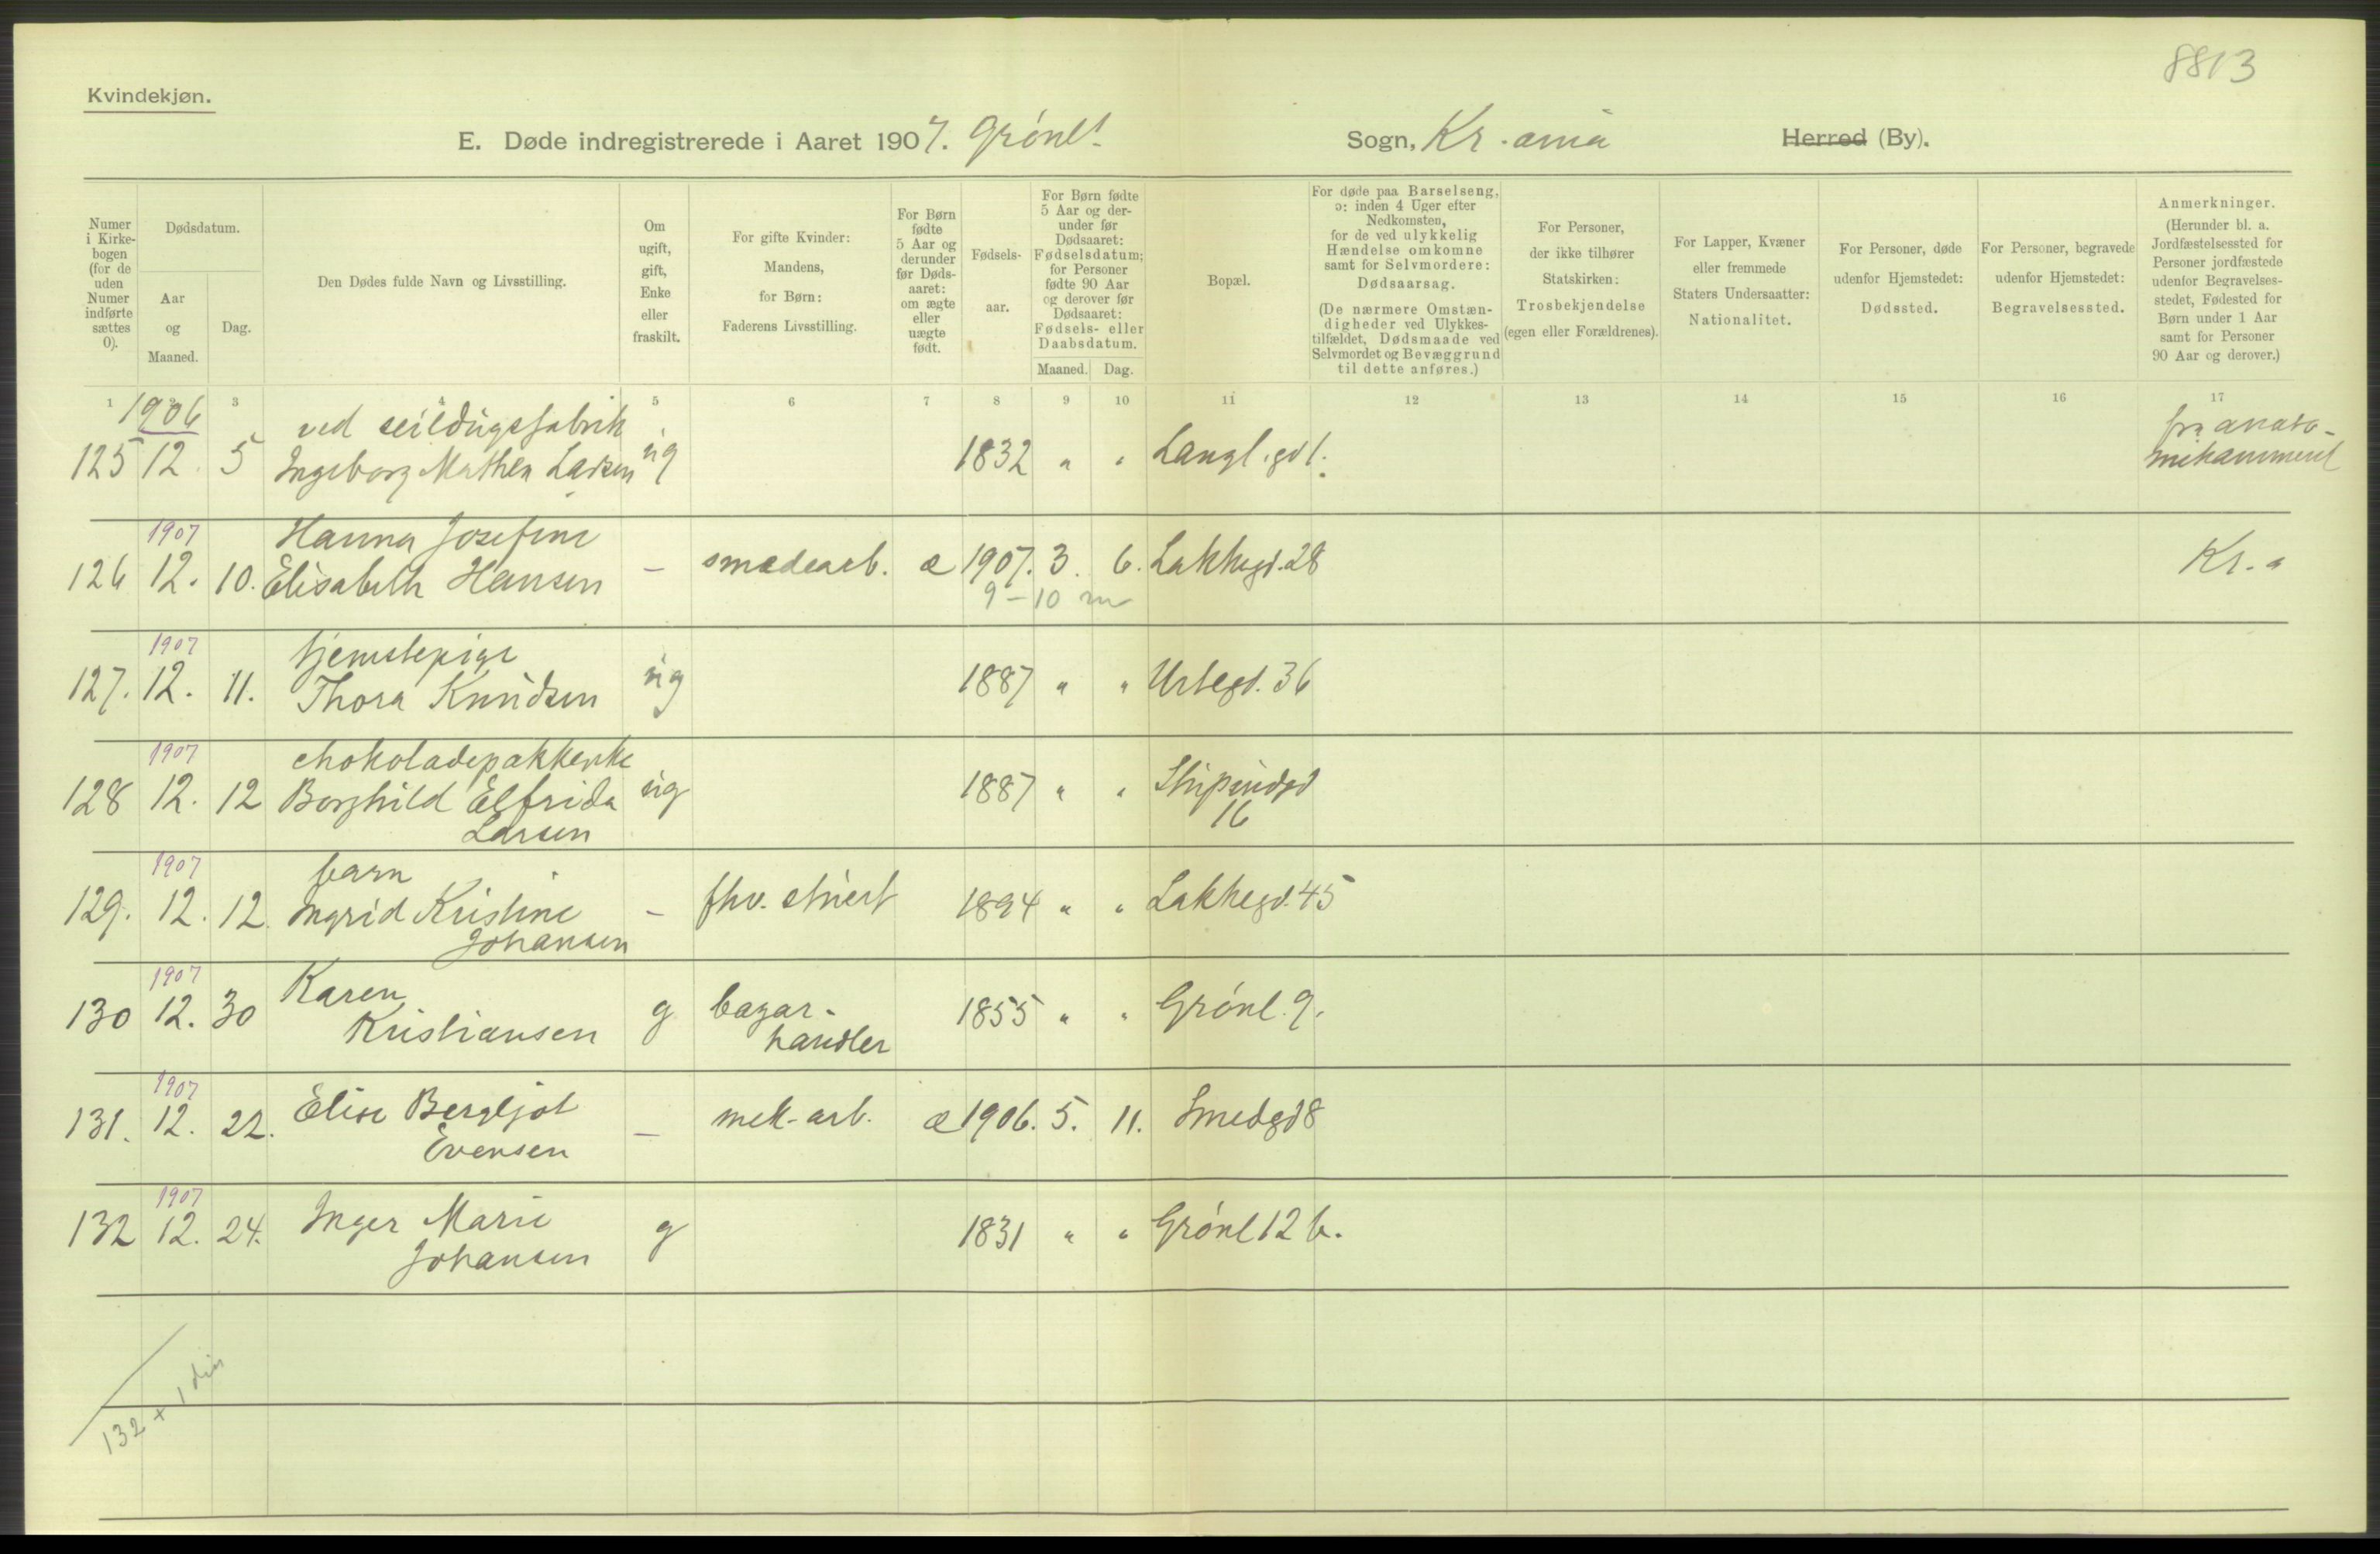 8813
Kvindekjøn.
E. Døde indregistrerede i Aaret 1907. Grønl. Sogn, Kr.ania Herred (By).
Numer i Kirkebogen (for de uden Numer indførte sættes 0).
Dødsdatum.
Aar og Maaned.
Dag.
Den Dødes fulde Navn og Livsstilling.
Om ugift, gift, Enke eller fraskilt.
For gifte Kvinder: Mandens, for Børn: Faderens Livsstilling.
For Børn fødte 5 Aar og derunder før Dødsaaret: om ægte eller uægte født.
Fødselsaar.
For Børn fødte 5 Aar og derunder før Dødsaaret: Fødselsdatum; for Personer fødte 90 Aar og derover før Dødsaaret: Fødsels- eller Daabsdatum.
Maaned. Dag.
Bopæl.
For døde paa Barselseng, ɔ: inden 4 Uger efter Nedkomsten, for de ved ulykkelig Hændelse omkomne samt for Selvmordere: Dødsaarsag.
(De nærmere Omstændigheder ved Ulykkestilfældet, Dødsmaade ved Selvmordet og Bevæggrund til dette anføres.)
For Personer, der ikke tilhører Statskirken: Trosbekjendelse (egen eller Forældrenes).
For Lapper, Kvæner eller fremmede Staters Undersaatter: Nationalitet.
For Personer, døde udenfor Hjemstedet: Dødssted.
For Personer, begravede udenfor Hjemstedet: Begravelsessted.
Anmerkninger.
(Herunder bl. a. Jordfæstelsessted for Personer jordfæstede udenfor Begravelsesstedet, Fødested for Børn under 1 Aar samt for Personer 90 Aar og derover.)
1 2 3 4 5 6 7 8 9 10 11 12 13 14 15 16 17
1906 ved seildugsfabrik fra anato-
125 12. 5 Ingeborg Mathea Larsen ug 1832 " " Langl.gd 1. mikammeret
1907 Hanna Josefine
126 12. 10. Elisabeth Hansen – smedearb. æ 1907. 3. 6. Lakkegd. 28 Kr.a
9–10 m
1907 tjenestepige
127. 12. 11. Thora Knudsen ug 1887 " " Urtegd. 36
1907 chokoladepakkerske
128 12. 12 Borghild Elfrida ug 1887 " " Stupindgd
Larsen 16
1907 barn
129. 12. 12. Ingrid Kristine – fhv. 1894 " " Lakkegd. 45
Johansen
1907 Karen
130 12. 30 Kristiansen g bazar- 1855 " " Grønl. 9.
handler
1907
131. 12. 22. Elise Bergljot – mek-arb. æ 1906. 5. 11. Smedgd 8
Evensen
1907
132 12. 24. Inger Marie g 1831 " " Grønl 12 b.
Johansen
132 + 1